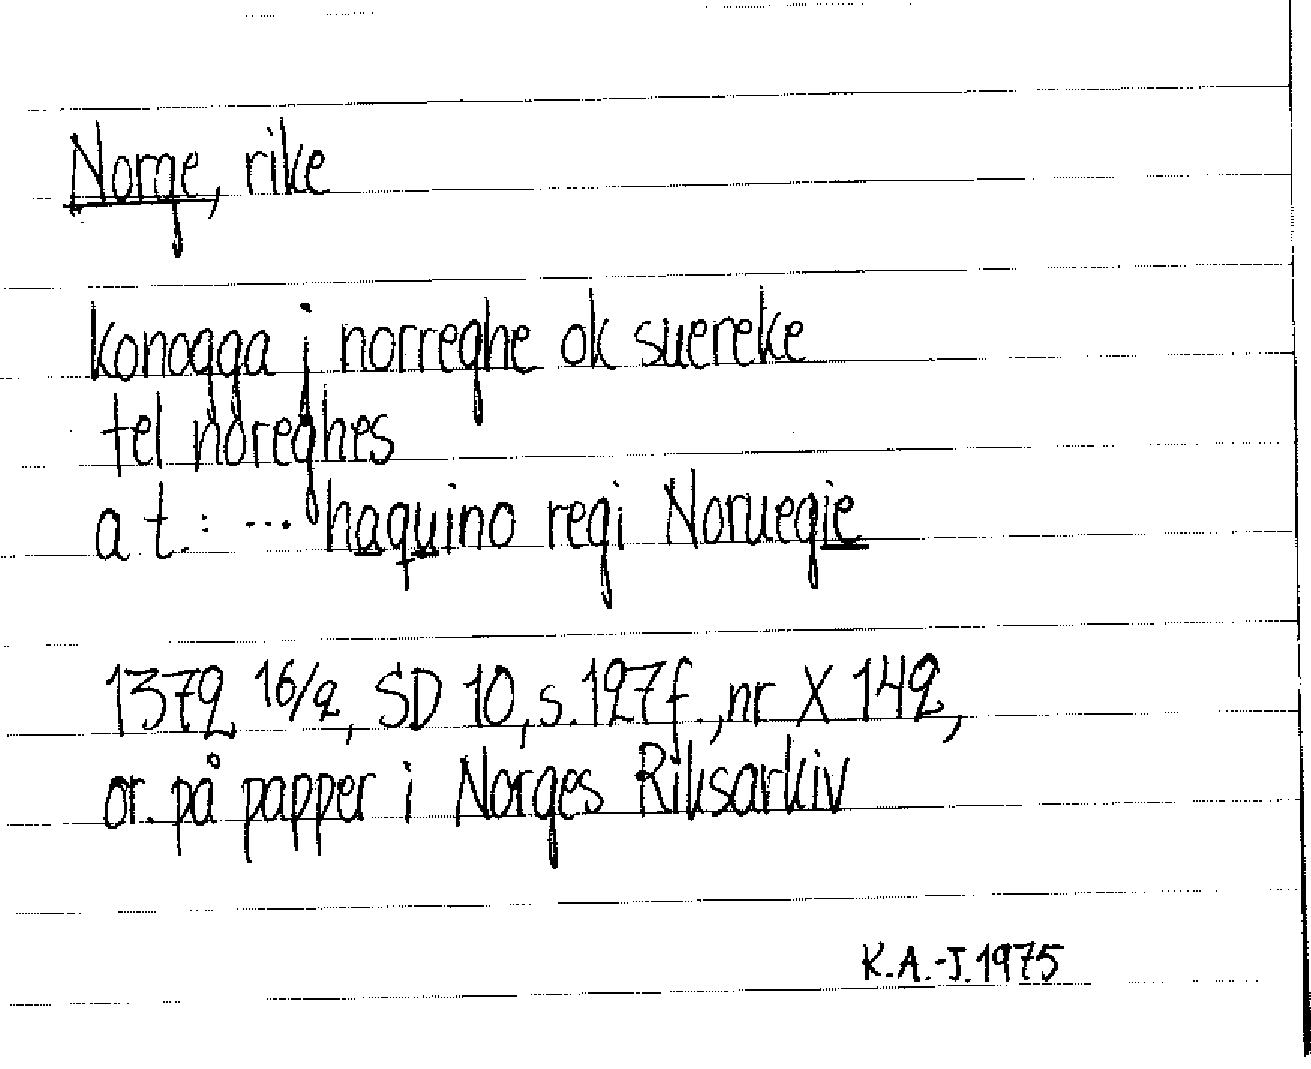 Norge, rike
konogga j norreghe ok suereke
tel noreghes
a t.: ... haquino regi Noruegie
1372 16/2, SD 10, s. 127f., nr X 142,
or. på papper i Norges Riksarkiv
K.A.-J. 1975